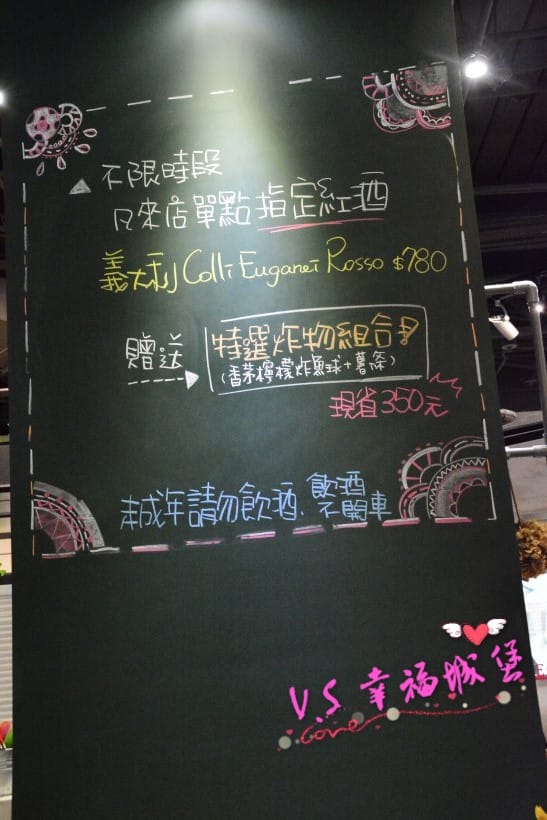 不限時段
只來店單點指定紅酒
義大利 Colli Euganei Rosso $780
贈送
特選炸物組合!
(香茅檸檬炸魚球+薯條)
現省350元
未成年請勿飲酒、飲酒不開車
V.S 幸福城堡
Love